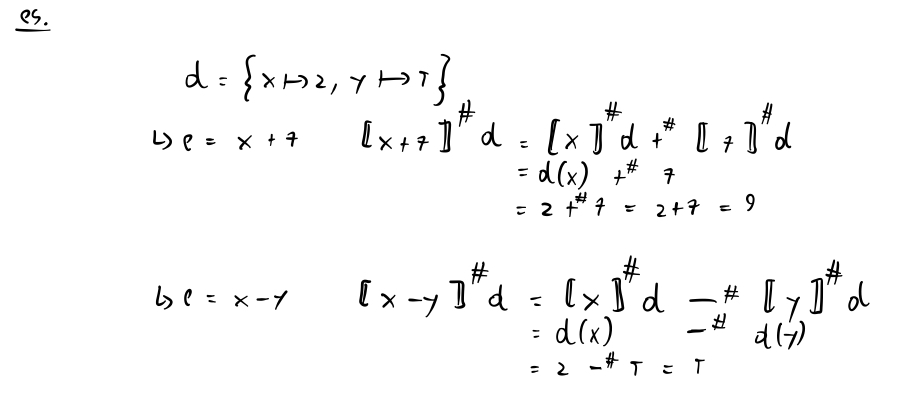 es.
d = {x ↦ 2, y ↦ T}
↳ e = x + 7 ⟦x + 7⟧# d = ⟦x⟧# d +# ⟦7⟧# d
= d(x) +# 7
= 2 +# 7 = 2 + 7 = 9
↳ e = x - y ⟦x - y⟧# d = ⟦x⟧# d -# ⟦y⟧# d
= d(x) -# d(y)
= 2 -# T = T